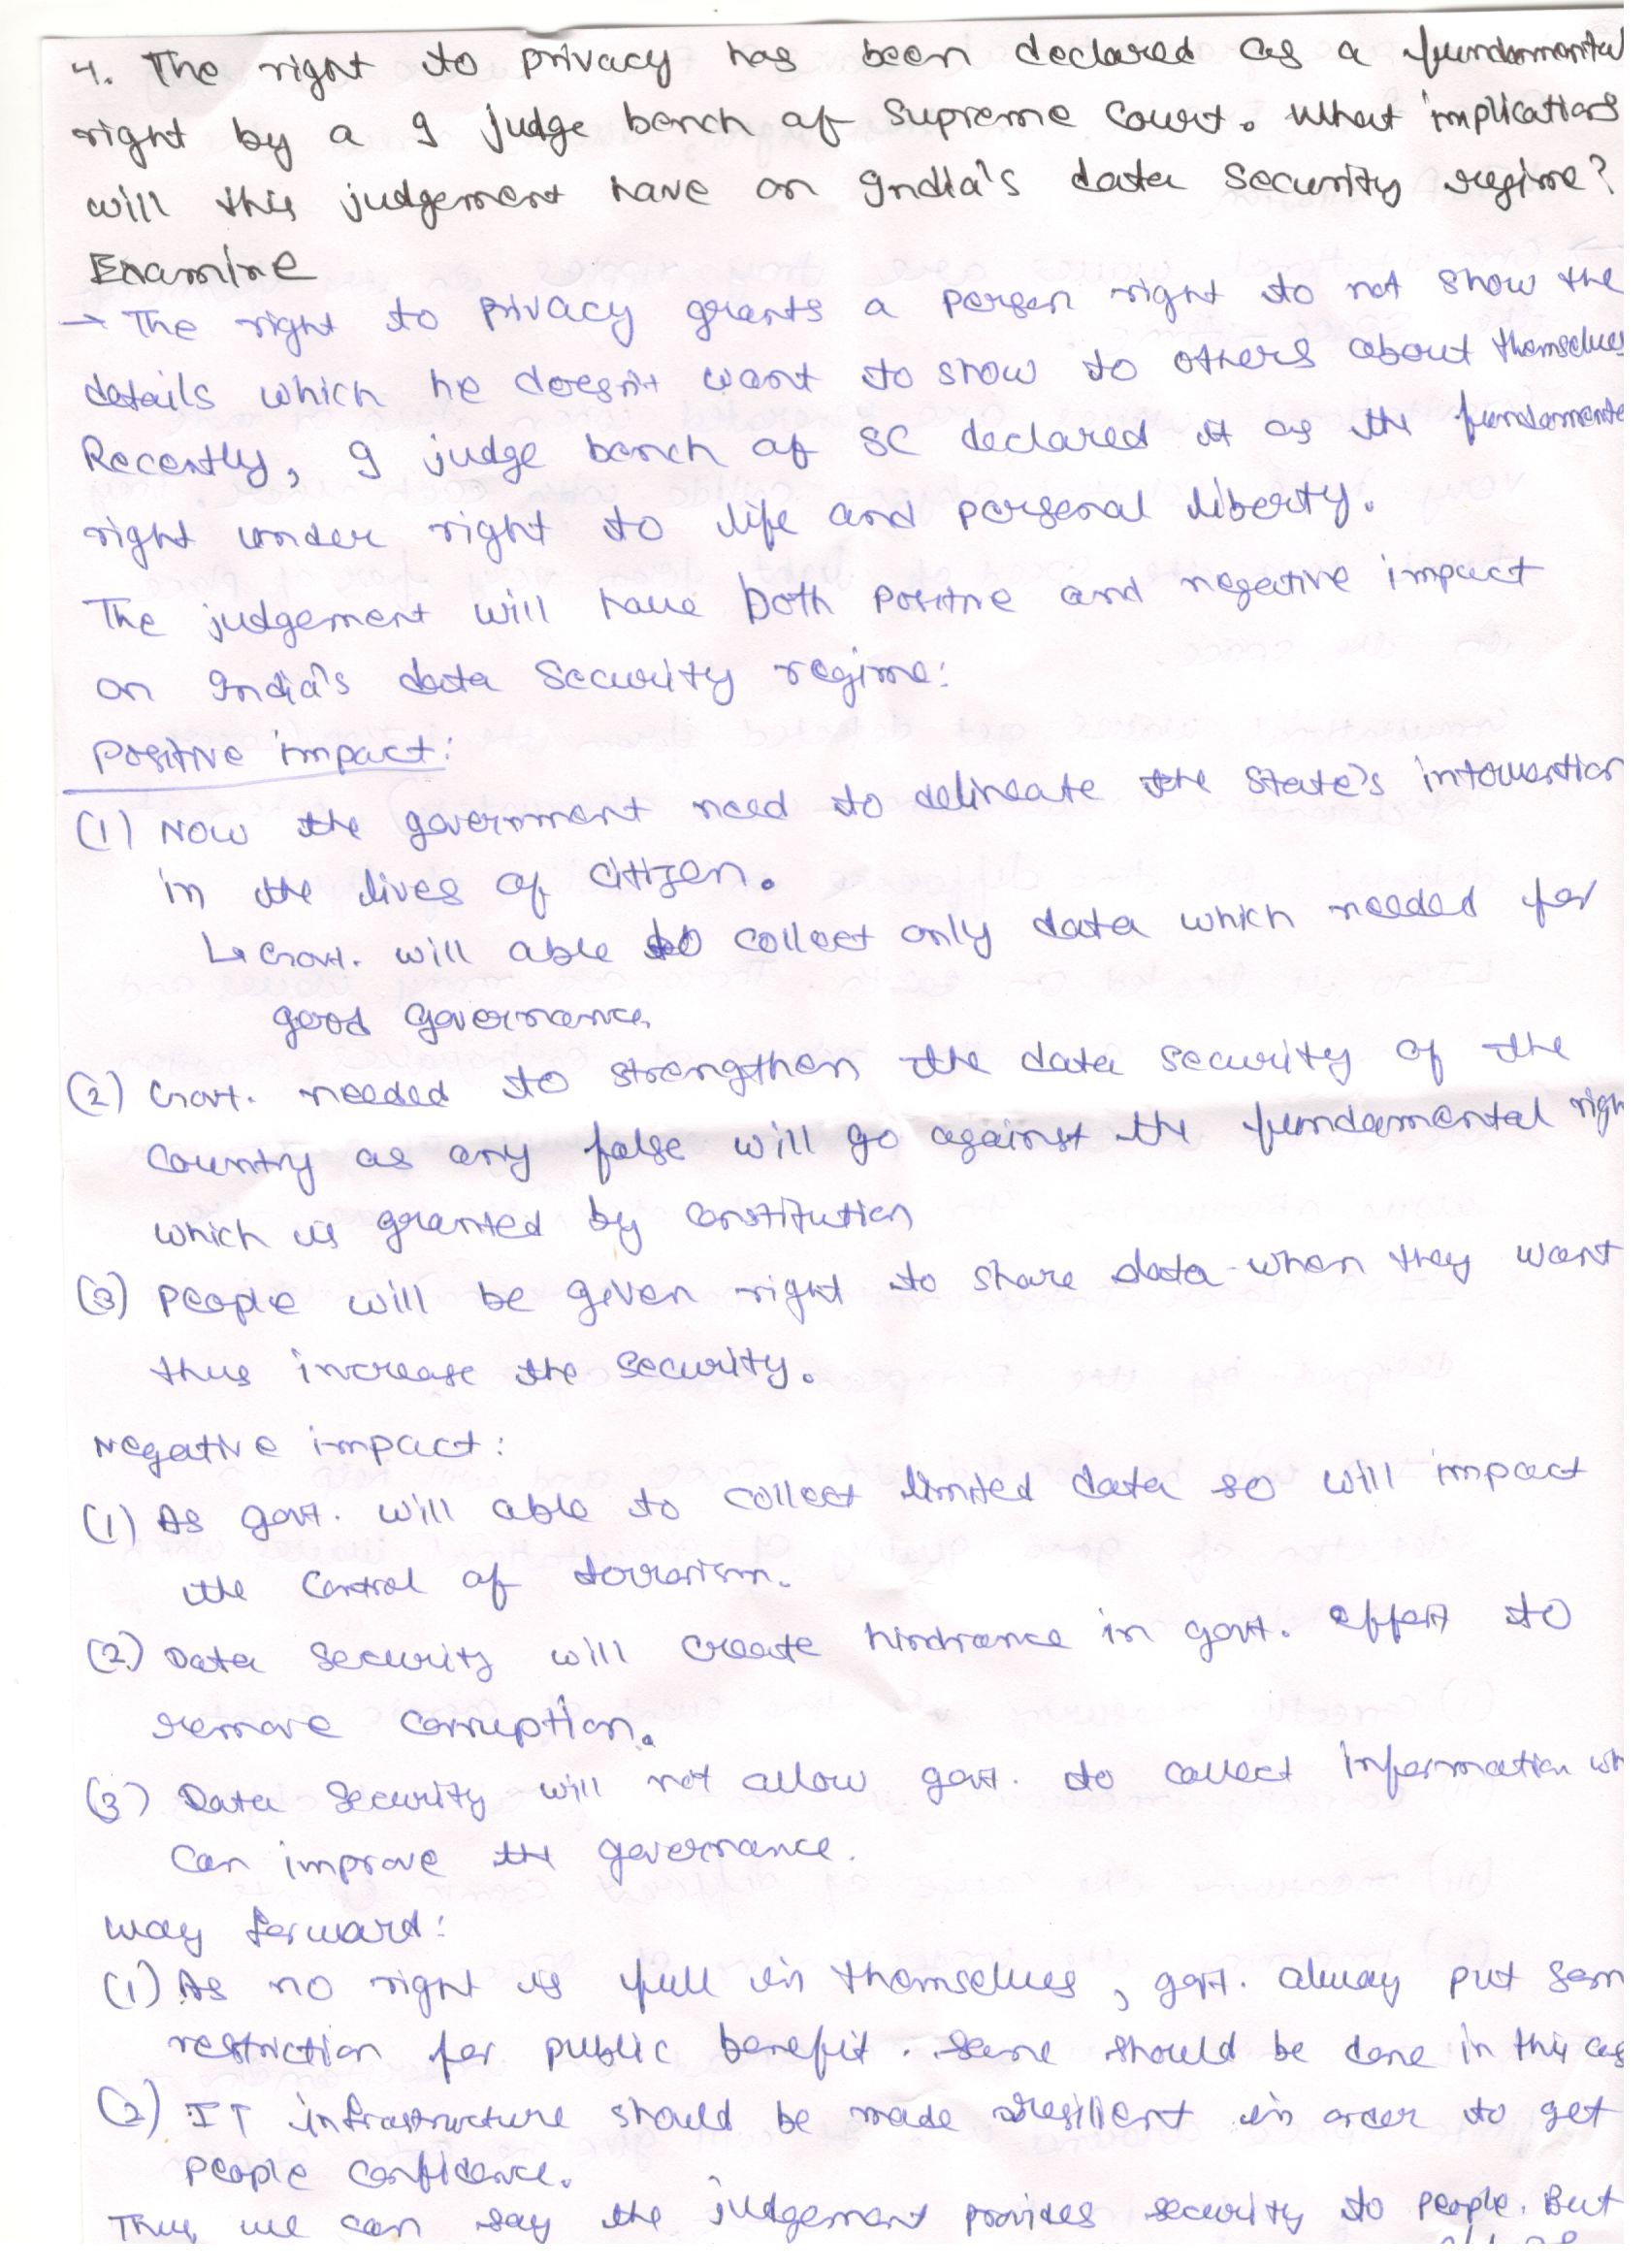 4. The right to privacy has been declared as a fundamental
right by a 9 judge bench of Supreme Court. What implications
will this judgement have on India's data security regime?
Examine
→ The right to privacy grants a person right to not show the
details which he doesn't want to show to others about themselves
Recently, 9 judge bench of SC declared it as the fundamenta
right under right to life and personal liberty.
The judgement will have both positive and negative impact
on India's data security regime:
Positive impact:
(1) Now the government need to delineate the State's intervention
in the lives of citizen.
↳ Govt. will able to collect only data which needed for
good governance
(2) Govt. needed to strengthen the data security of the
country as any false will go against the fundamental righ
which is granted by constitution
(3) People will be given right to share data when they want
thus increase the security.
Negative impact:
(1) As govt. will able to collect limited data so will impact
the control of terrorism.
(2) Data security will create hindrance in govt. effort to
remove corruption.
(3) Data security will not allow govt. to collect information wh
can improve the governance.
way forward:
(1) As no right is full in themselves, govt. alway put som
restriction for public benefit. Same should be done in this cas
(2) IT infrastructure should be made resilient in order to get
people confidence.
Thus we can say the judgement provides security to people. But